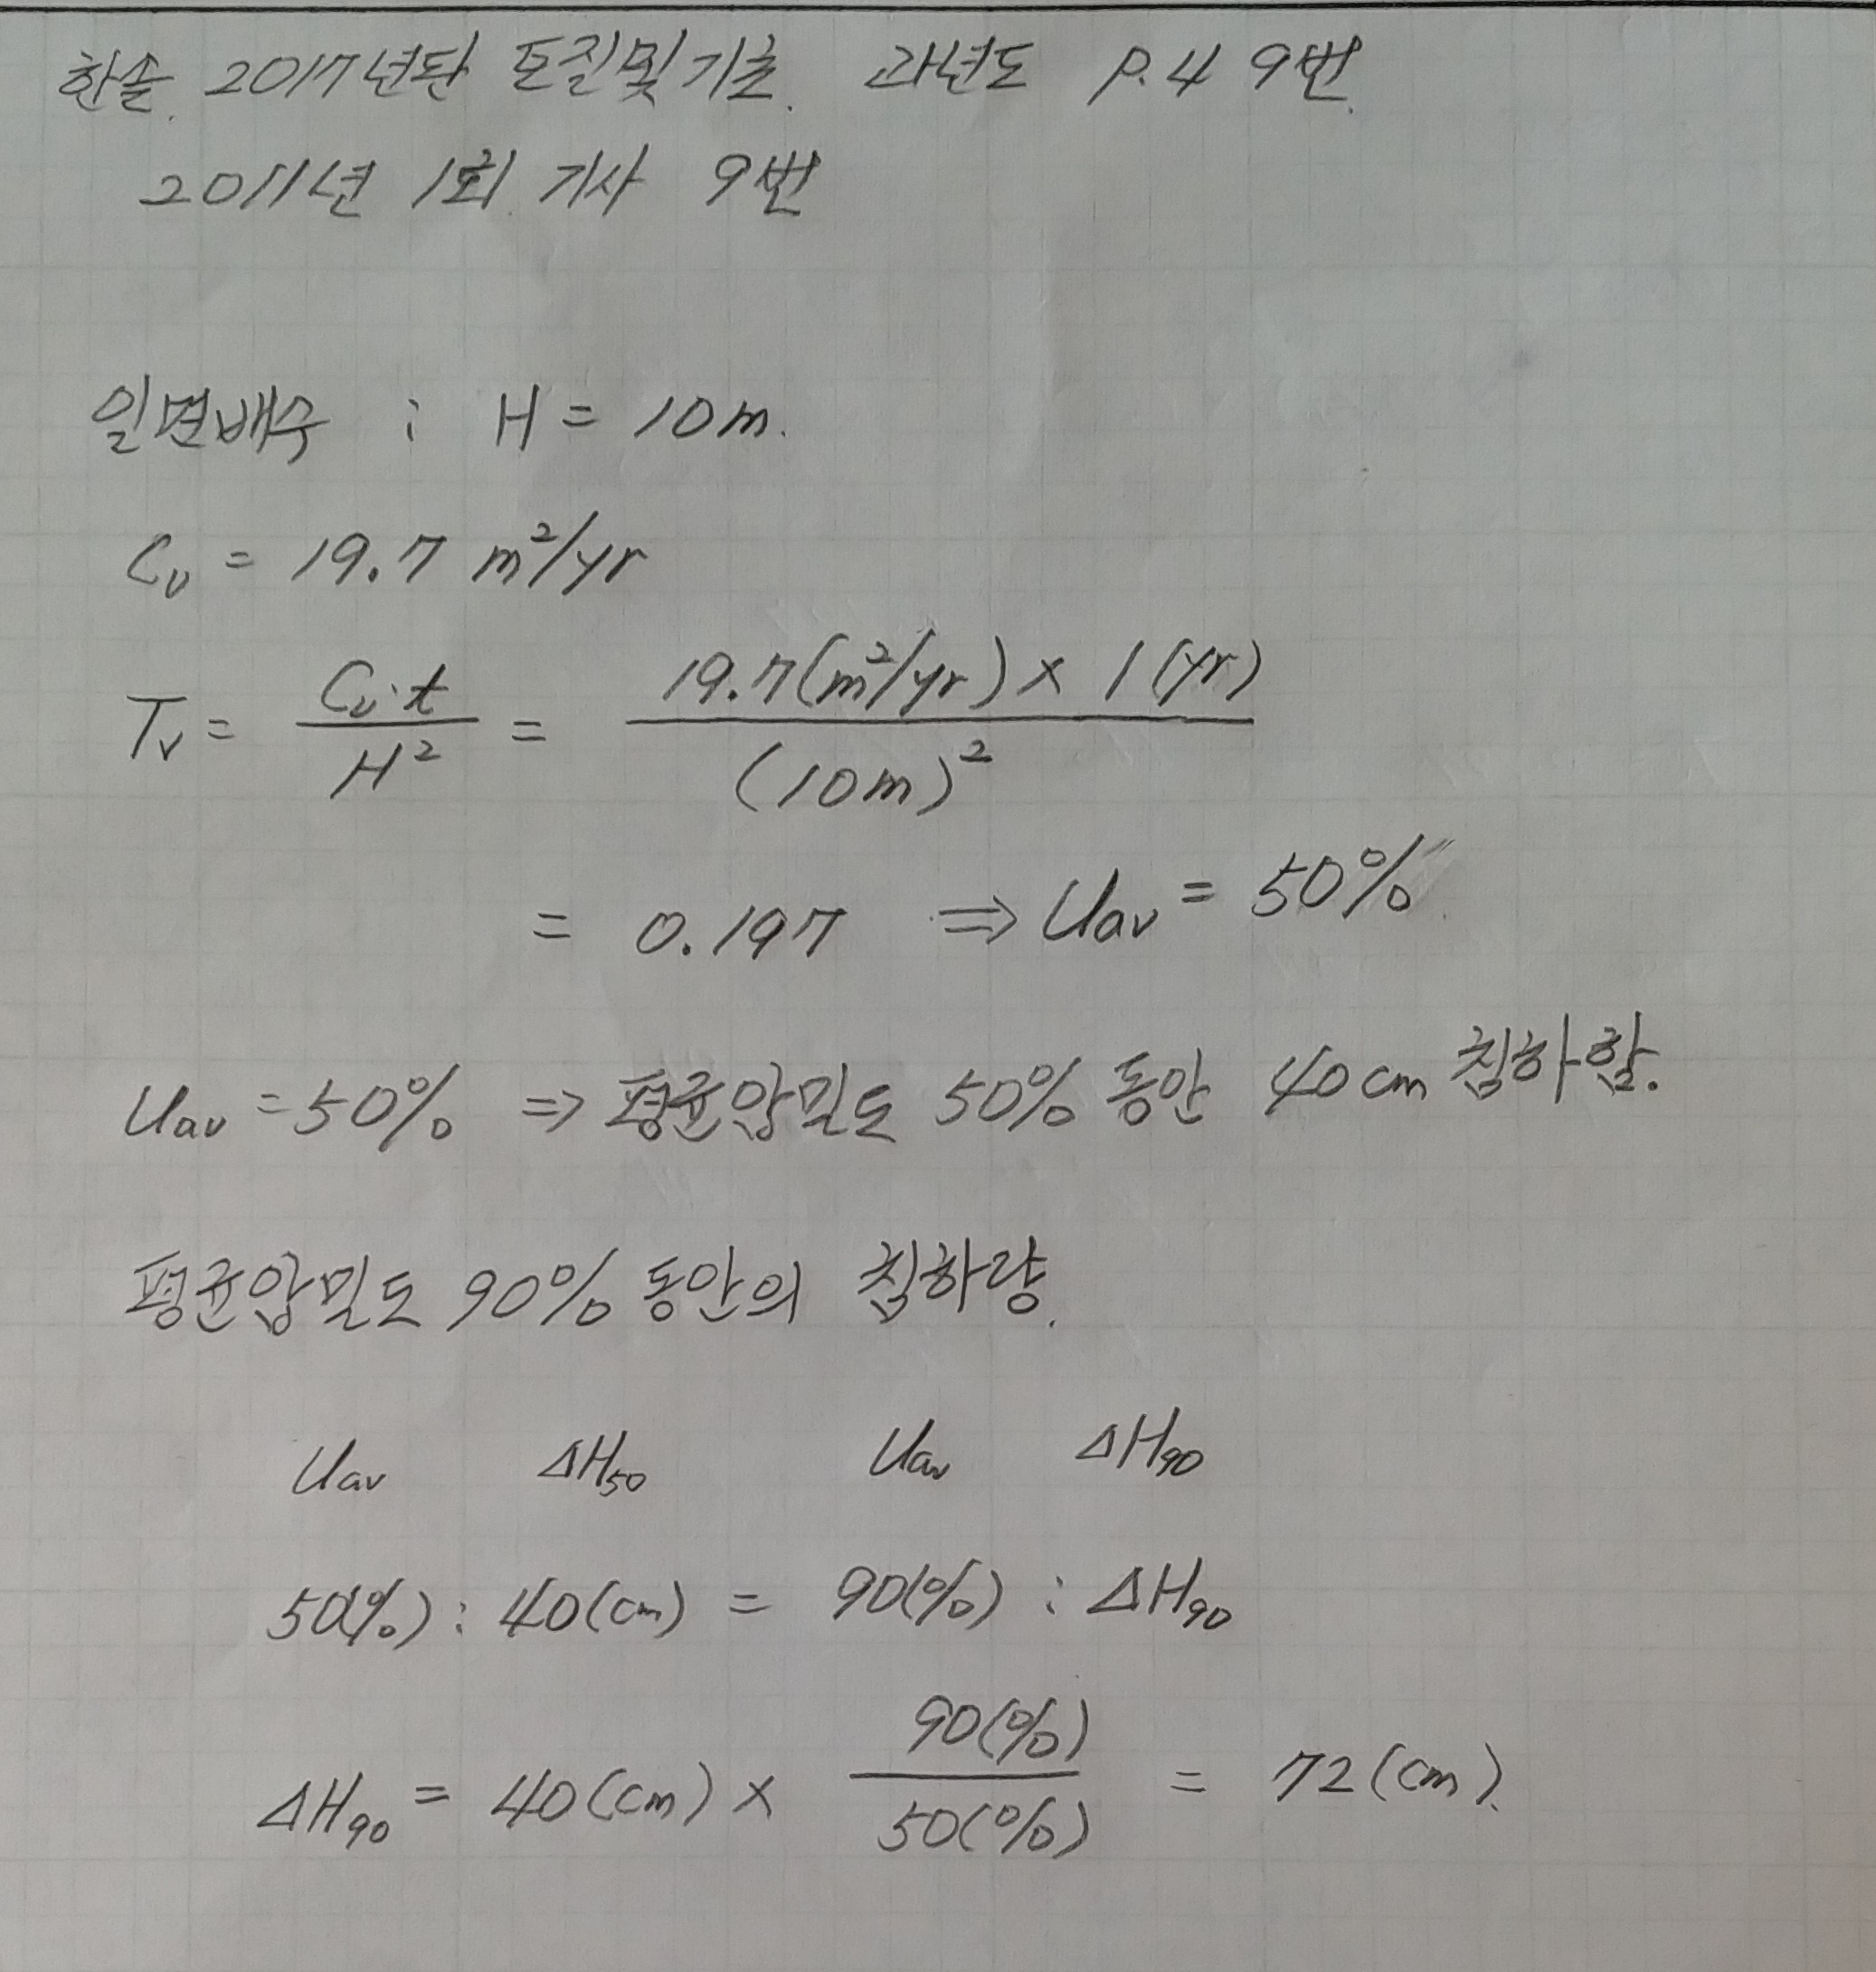 한솔. 2017년판 토질및기초. 과년도 P.4 9번.
2011년 1회. 기사 9번
일면배수 : H = 10m.
Cv = 19.7 m²/yr
Tv = Cv·t / H² = 19.7(m²/yr) × 1(yr) / (10m)²
= 0.197 ⇒ Uav = 50%
Uav = 50% ⇒ 평균압밀도 50% 동안 40cm 침하함.
평균압밀도 90% 동안의 침하량.
Uav ΔH50 Uav ΔH90
50(%) : 40(cm) = 90(%) : ΔH90
ΔH90 = 40(cm) × 90(%) / 50(%) = 72(cm).